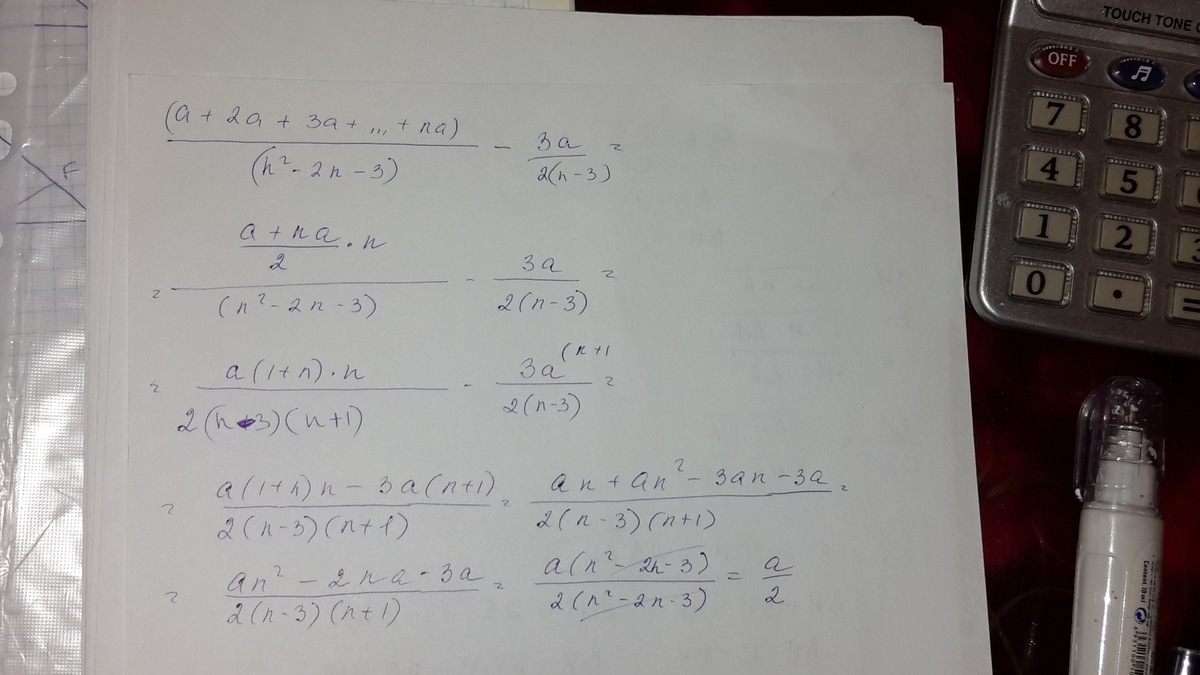 (a + 2a + 3a + ... + na) / (n² - 2n - 3) - 3a / 2(n-3) =
= (a + na / 2 · n) / (n² - 2n - 3) - 3a / 2(n-3) =
= a(1+n)·n / 2(n-3)(n+1) - 3a (n+1 / 2(n-3) =
= a(1+n)n - 3a(n+1) / 2(n-3)(n+1) = an + an² - 3an - 3a / 2(n-3)(n+1) =
= an² - 2na - 3a / 2(n-3)(n+1) = a(n² - 2n - 3) / 2(n² - 2n - 3) = a / 2
F
TOUCH TONE
OFF
7 8
4 5
1 2 3
0 · =
Content: 10 ml